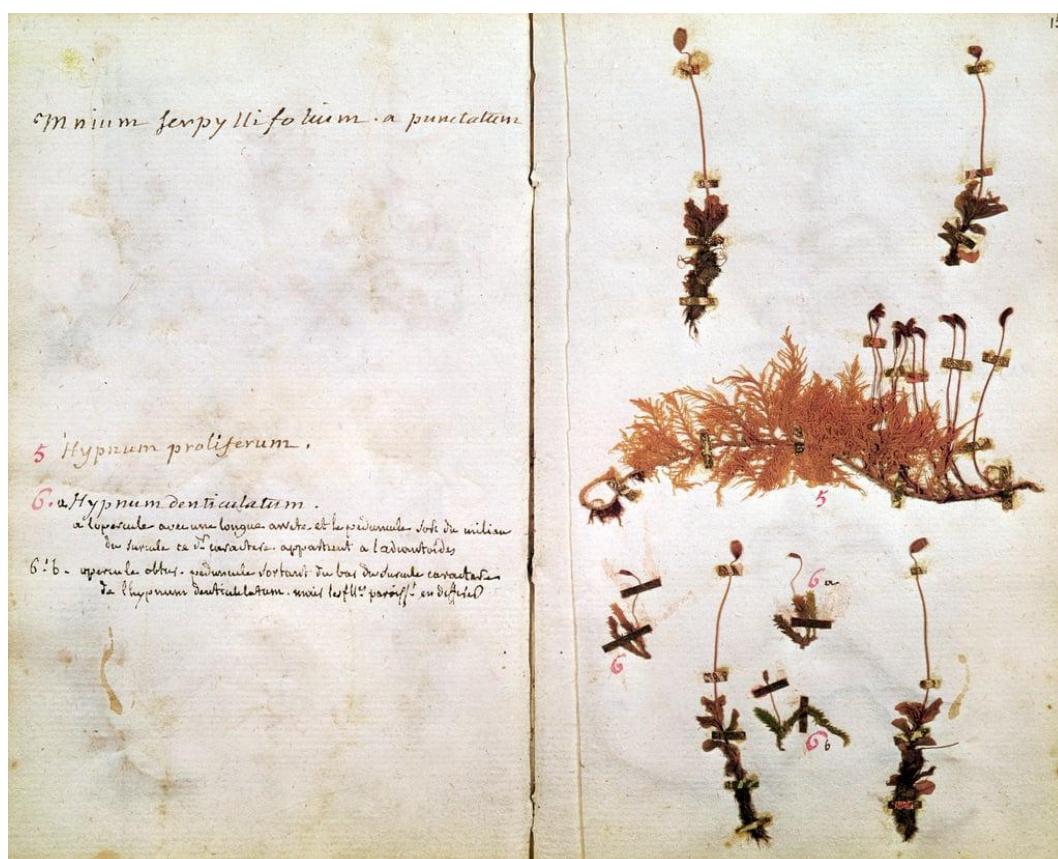 Mnium serpyllifolium. a punctatum
5 Hypnum proliferum.
6. a Hypnum denticulatum.
a l'opercule avec une longue arrete et le peduncule sort du milieu
du surcule ce dr. caractere. appartient a l'adiantoides
6. b. opercule obtus. peduncule sortant du bas du surcule caractere
de l'hypnum denticulatum. mais les en
15
5
6 a
6
6 b